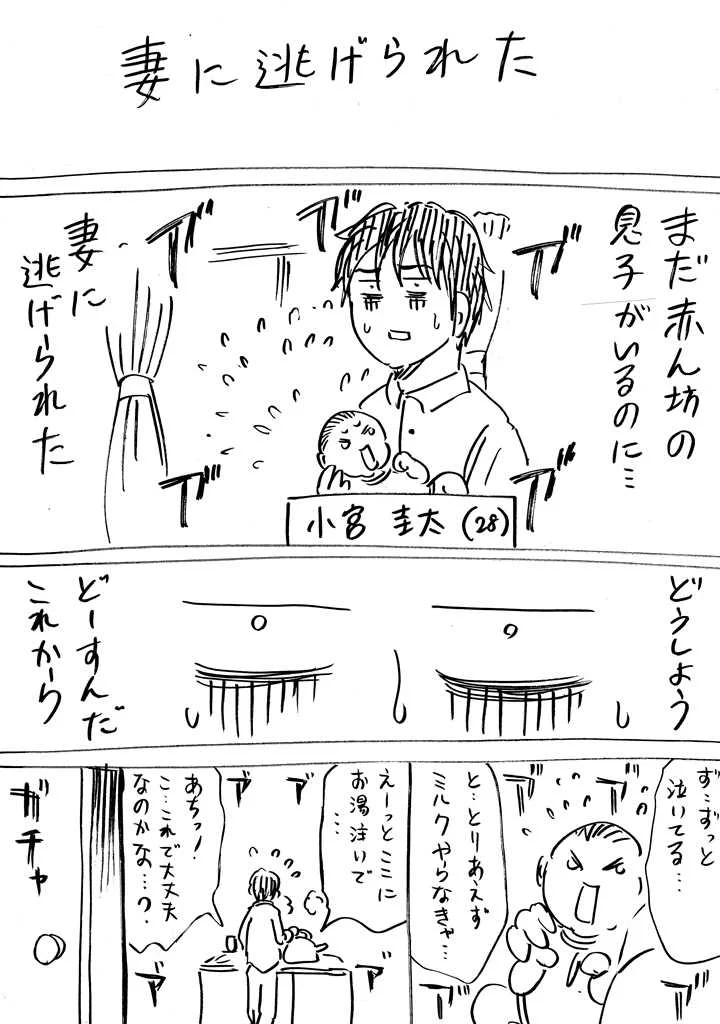 妻に逃げられた
まだ赤ん坊の
息子がいるのに…
ブブブブブ
妻に
逃げられた
小宮 圭太(28)
どうしよう
どーすんだ
これから
ず…ずっと
泣いてる…
と…とりあえず
ミルクやらなきゃ…
えーっとここに
お湯注いで
…
あちっ!
こ…これで大丈夫
なのかな…?
ガチャ